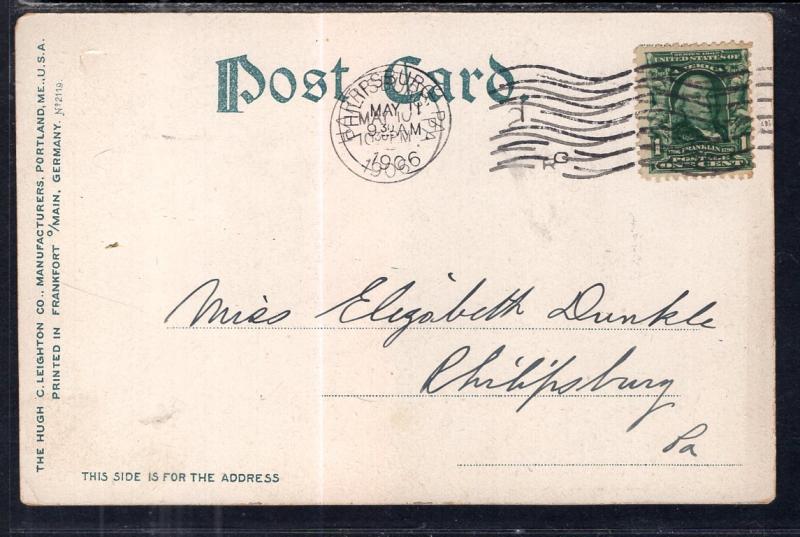 Post Card.
UNITED STATES OF
AMERICA
FRANKLIN
POSTAGE
ONE CENT
MAY 11
MAY 10
9 30 AM
1906
1906
THE HUGH C. LEIGHTON CO., MANUFACTURERS, PORTLAND, ME., U.S.A.
PRINTED IN FRANKFORT o/MAIN, GERMANY. No 2119.
Miss Elizabeth Dunkle
Philipsburg
Pa
THIS SIDE IS FOR THE ADDRESS